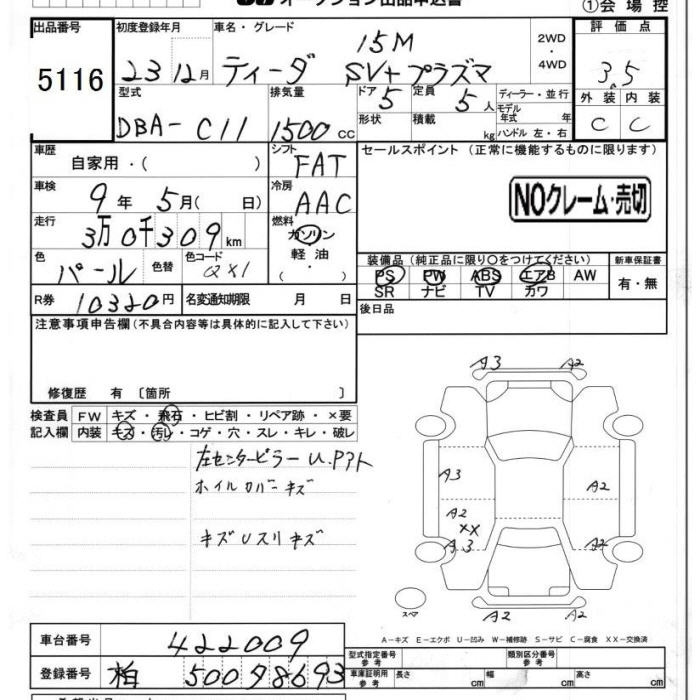 オークション出品申込書
①会場控
出品番号
5116
初度登録年月
23 12月
車名・グレード
ティーダ
15M
SV+プラズマ
2WD
・
4WD
評価点
3.5
外装 内装
C C
型式
DBA- C11
排気量
1500cc
ドア
5
定員
5人
形状
積載
kg
ディーラー・並行
モデル年式 年
ハンドル 左・右
車歴
自家用・( )
シフト
FAT
車検
9年 5月( 日)
冷房
AAC
走行
3万0千309km
燃料
ガソリン
軽油
( ・ )
色
パール
色替
色コード
QX1
R券
10320円
名変通知期限 月 日
セールスポイント(正常に機能するものに限ります)
NOクレーム・売切
装備品(純正品に限り○をつけてください)
PS PW ABS エアB AW
SR ナビ TV カワ
新車保証書
有・無
後日品
注意事項申告欄(不具合内容等は具体的に記入して下さい)
修復歴 有〔箇所 〕
検査員記入欄
FW キズ・飛石・ヒビ割・リペア跡・×要
内装 キズ・汚レ・コゲ・穴・スレ・キレ・破レ
左センターピラーU.Pアト
ホイルカバーキズ
キズUスリキズ
A3 A2
A3 A2
A2
XX
A3 A2
A2 A2
スペア
A-キズ E-エクボ U-凹み W-補修跡 S-サビ C-腐食 XX-交換済
車台番号
422009
登録番号
柏 500 タ8693
型式指定番号
参考
類別区分番号
参考
車庫証明用
参考
長さ cm 幅 cm 高さ cm